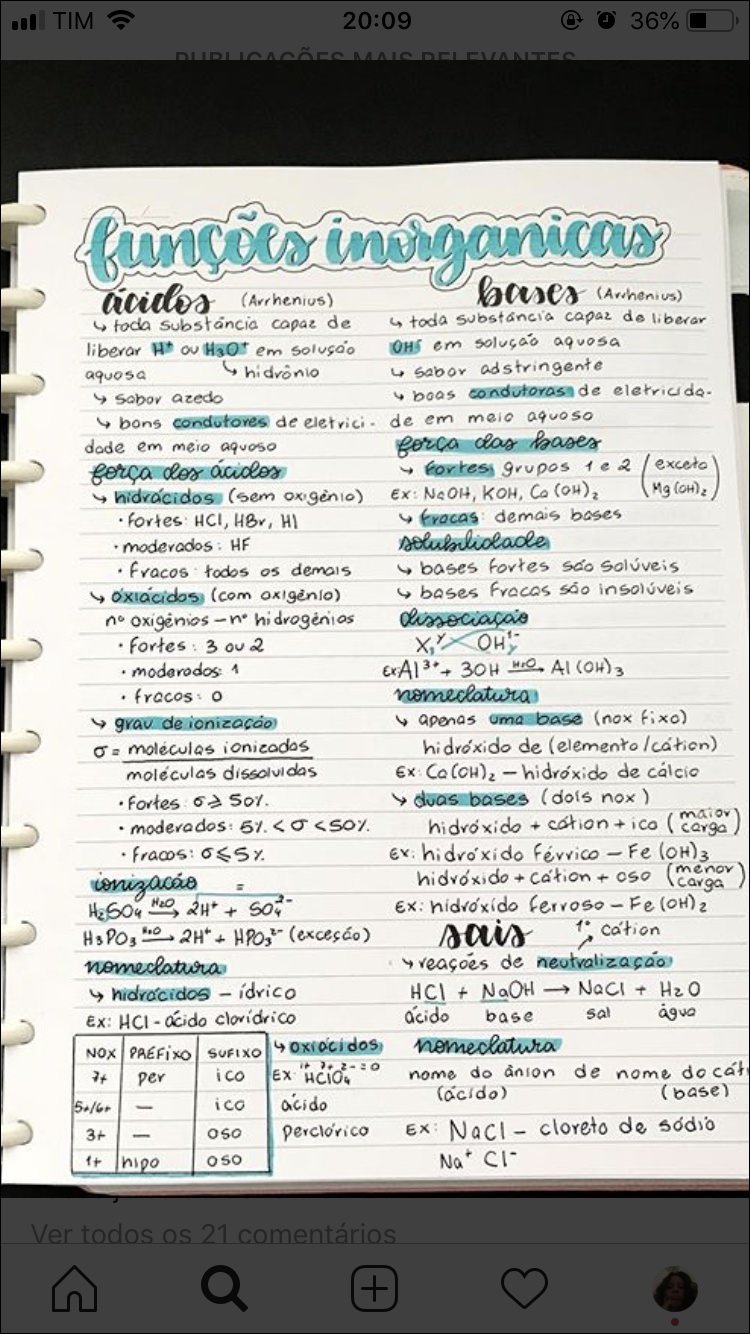 TIM 20:09 36%
PUBLICAÇÕES MAIS RELEVANTES
funções inorganicas
ácidos (Arrhenius)
↳ toda substância capaz de
liberar H⁺ ou H₃O⁺ em solução
aquosa ↳ hidrônio
↳ sabor azedo
↳ bons condutores de eletrici-
dade em meio aquoso
força dos ácidos
↳ hidrácidos (sem oxigênio)
• fortes: HCl, HBr, HI
• moderados: HF
• fracos: todos os demais
↳ oxiácidos (com oxigênio)
nº oxigênios – nº hidrogênios
• fortes: 3 ou 2
• moderados: 1
• fracos: 0
↳ grau de ionização
σ = moléculas ionizadas
moléculas dissolvidas
• fortes: σ ⩾ 50%
• moderados: 5% < σ < 50%
• fracos: σ ⩽ 5%
ionização =
H₂SO₄ —H₂O→ 2H⁺ + SO₄²⁻
H₃PO₃ —H₂O→ 2H⁺ + HPO₃²⁻ (exceção)
nomeclatura
↳ hidrácidos – ídrico
Ex: HCl - ácido clorídrico
NOX PREFIXO SUFIXO
7+ per ico
5+/6+ — ico
3+ — oso
1+ hipo oso
↳ oxiácidos
1+ 7+ 2- = 0
Ex: HClO₄
ácido
perclórico
bases (Arrhenius)
↳ toda substância capaz de liberar
OH⁻ em solução aquosa
↳ sabor adstringente
↳ boas condutoras de eletricida-
de em meio aquoso
força das bases
↳ fortes: grupos 1 e 2 (exceto Mg(OH)₂)
Ex: NaOH, KOH, Ca(OH)₂
↳ fracas: demais bases
solubilidade
↳ bases fortes são solúveis
↳ bases fracas são insolúveis
dissociação
X₁ʸ OHᵧ¹⁻
Ex: Al³⁺ + 3OH —H₂O→ Al(OH)₃
nomeclatura
↳ apenas uma base (nox fixo)
hidróxido de (elemento/cátion)
Ex: Ca(OH)₂ – hidróxido de cálcio
↳ duas bases (dois nox)
hidróxido + cátion + ico (maior carga)
Ex: hidróxido férrico – Fe(OH)₃
hidróxido + cátion + oso (menor carga)
Ex: hidróxido ferroso – Fe(OH)₂
sais 1º cátion
↳ reações de neutralização
HCl + NaOH → NaCl + H₂O
ácido base sal água
nomeclatura
nome do ânion de nome do cát
(ácido) (base)
Ex: NaCl – cloreto de sódio
Na⁺ Cl⁻
Ver todos os 21 comentários